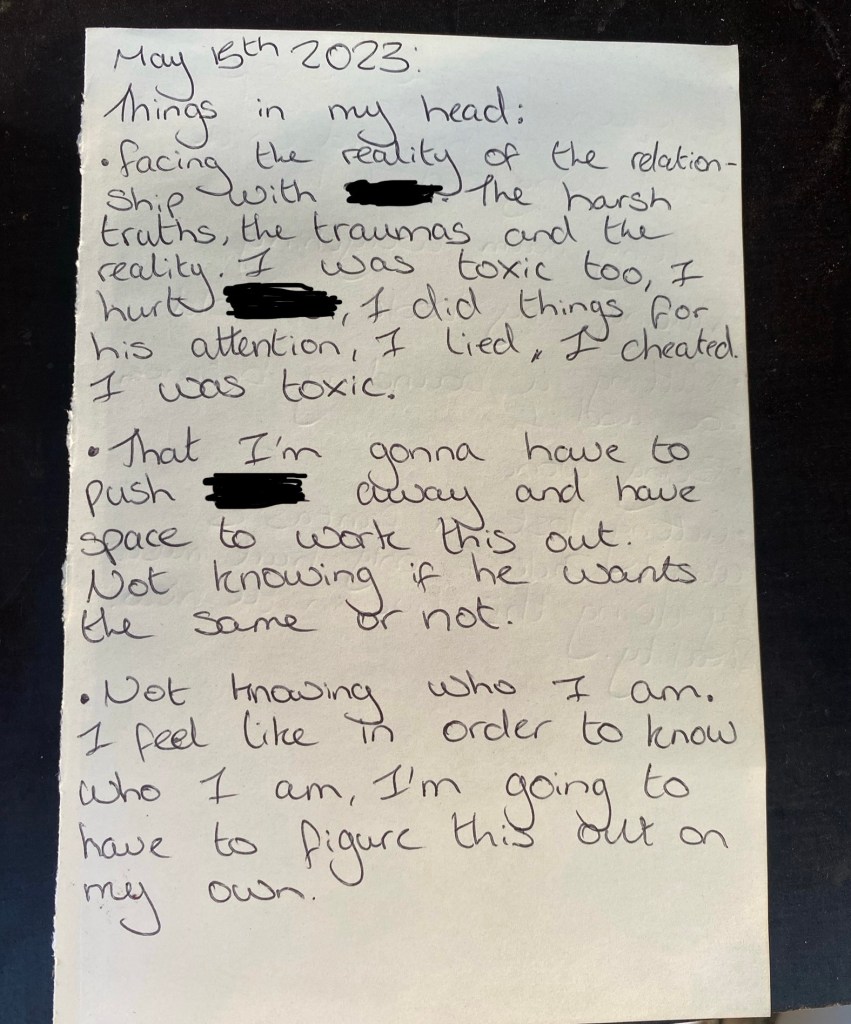 May 15th 2023:
Things in my head:
• facing the reality of the relation-
ship with . The harsh
truths, the traumas and the
reality. I was toxic too, I
hurt , I did things for
his attention, I lied, I cheated.
I was toxic.
• That I'm gonna have to
push away and have
space to work this out.
Not knowing if he wants
the same or not.
• Not knowing who I am.
I feel like in order to know
who I am, I'm going to
have to figure this out on
my own.